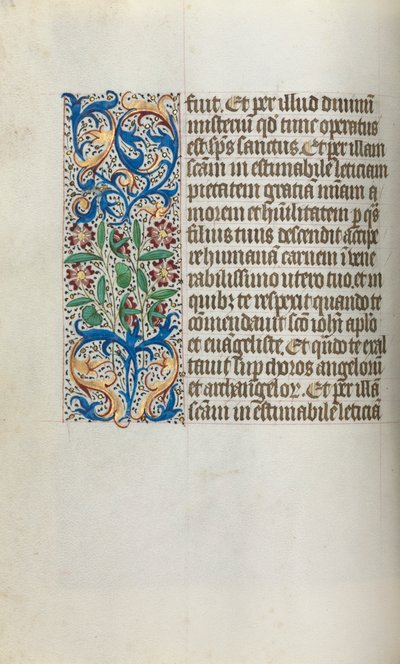 fuit. Et per illud diuinū
misteriū qd̄ tunc operatus
est sp̄s sanctus. Et per illam
scām in estimabile leticiam
pietatem gratiā mīam a
morem et hūilitatem p q̄s
filius tuus descendit accipe
re humanā carnem ī vene
rabilissimo utero tuo. et in
quibꝫ te respexit quando te
cōmendauit scō iohī aplo
et euāgeliste. Et qn̄do te exal
tauit sup choros angeloꝝ
et archangeloꝝ. Et per illā
scām in estimabile leticiā